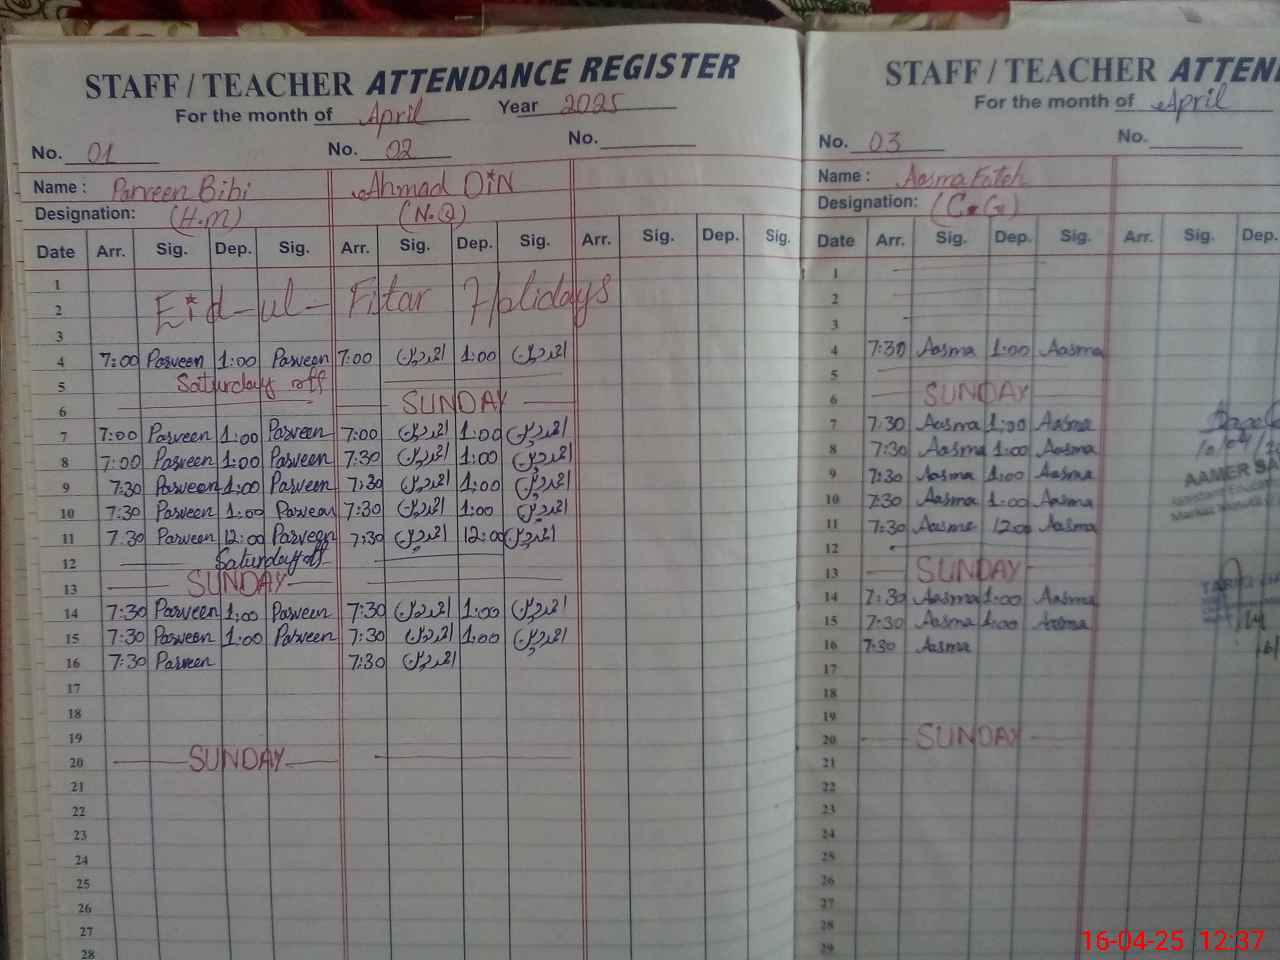 STAFF / TEACHER ATTENDANCE REGISTER
For the month of April Year 2025
No. 01 No. 02 No.
Name : Parveen Bibi Ahmad DiN
Designation: (H.M) (N.Q)
Date Arr. Sig. Dep. Sig. Arr. Sig. Dep. Sig. Arr. Sig. Dep. Sig.
1
2 Eid-ul-Fitar Holidays
3
4 7:00 Parveen 1:00 Parveen 7:00 احمد دین 1:00 احمد دین
5 Saturday off
6 SUNDAY
7 7:00 Parveen 1:00 Parveen 7:00 احمد دین 1:00 احمد دین
8 7:00 Parveen 1:00 Parveen 7:30 احمد دین 1:00 احمد دین
9 7:30 Parveen 1:00 Parveen 7:30 احمد دین 1:00 احمد دین
10 7:30 Parveen 1:00 Parveen 7:30 احمد دین 1:00 احمد دین
11 7:30 Parveen 12:00 Parveen 7:30 احمد دین 12:00 احمد دین
12 Saturday off
13 SUNDAY
14 7:30 Parveen 1:00 Parveen 7:30 احمد دین 1:00 احمد دین
15 7:30 Parveen 1:00 Parveen 7:30 احمد دین 1:00 احمد دین
16 7:30 Parveen 7:30 احمد دین
17
18
19
20 SUNDAY
21
22
23
24
25
26
27
28
STAFF / TEACHER ATTEN
For the month of April
No. 03 No.
Name : Aasma Fateh
Designation: (C.G)
Date Arr. Sig. Dep. Sig. Arr. Sig. Dep.
1
2
3
4 7:30 Aasma 1:00 Aasma
5
6 SUNDAY
7 7:30 Aasma 1:00 Aasma
8 7:30 Aasma 1:00 Aasma
9 7:30 Aasma 1:00 Aasma
10 7:30 Aasma 1:00 Aasma
11 7:30 Aasma 12:00 Aasma
12
13 SUNDAY
14 7:30 Aasma 1:00 Aasma
15 7:30 Aasma 1:00 Aasma
16 7:30 Aasma
17
18
19
20 SUNDAY
21
22
23
24
25
26
27
28
29
AAMER SA
16-04-25 12:37